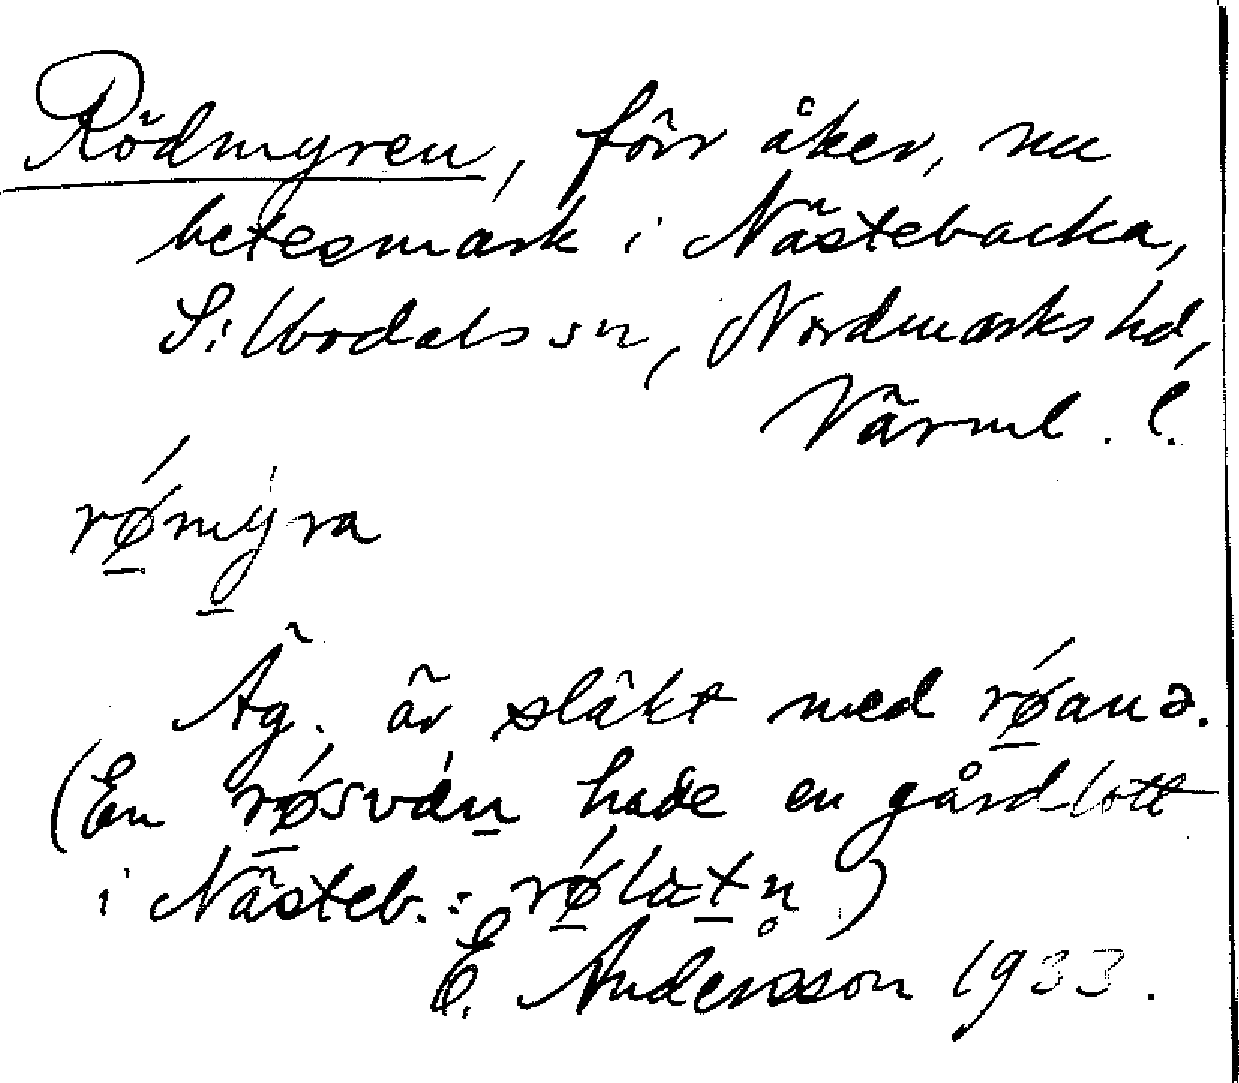 Rödmyren, förr åker, nu
betesmark i Nästebacka,
Silbodals sn, Nordmarks hd,
Värml. l.
rǿ̱mỳ̱ra
Äg. är släkt med rǿ̱anə.
(En rǿ̱svæ̀ṉ hade en gårdlott
i Nästeb.: rǿ̱lɯṯn̥)
E. Andersson 1933.